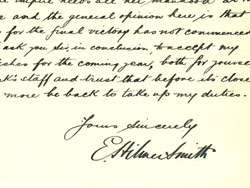 and the general opinion here is that
for the final victory has not commenced
ask you Sir, in conclusion, to accept my
wishes for the coming year, both for yourse
k's staff and trust that before its close
more be back to take up my duties.
Yours Sincerely
E. Hilmer Smith